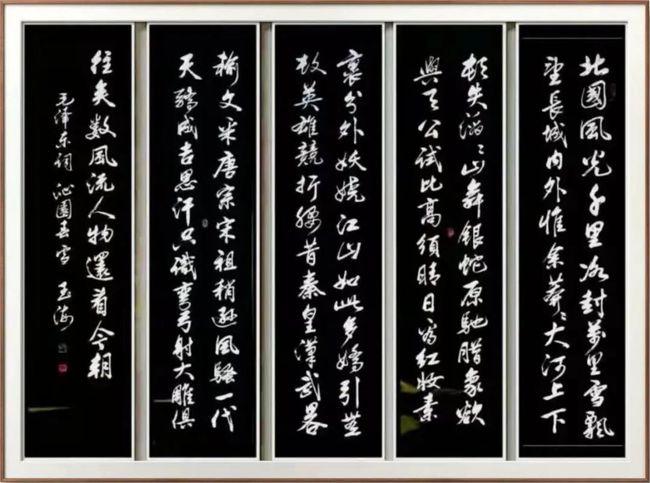 北國風光千里冰封萬里雪飄
望長城内外惟余莽〻大河上下
頓失滔〻山舞銀蛇原馳腊象欲
與天公試比高須晴日看紅妝素
裹分外妖嬈江山如此多嬌引無
故英雄競折腰昔秦皇漢武畧
輸文采唐宗宋祖稍遜風騷一代
天驕成吉思汗只識彎弓射大雕俱
往矣数風流人物還看今朝
毛泽东詞 沁園春雪 玉海